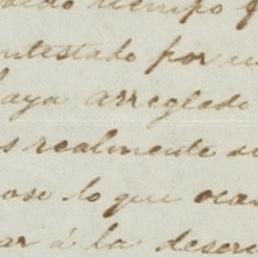 tiempo
ntestado por
haya arreglado
s realmente
ose lo que
ar á la